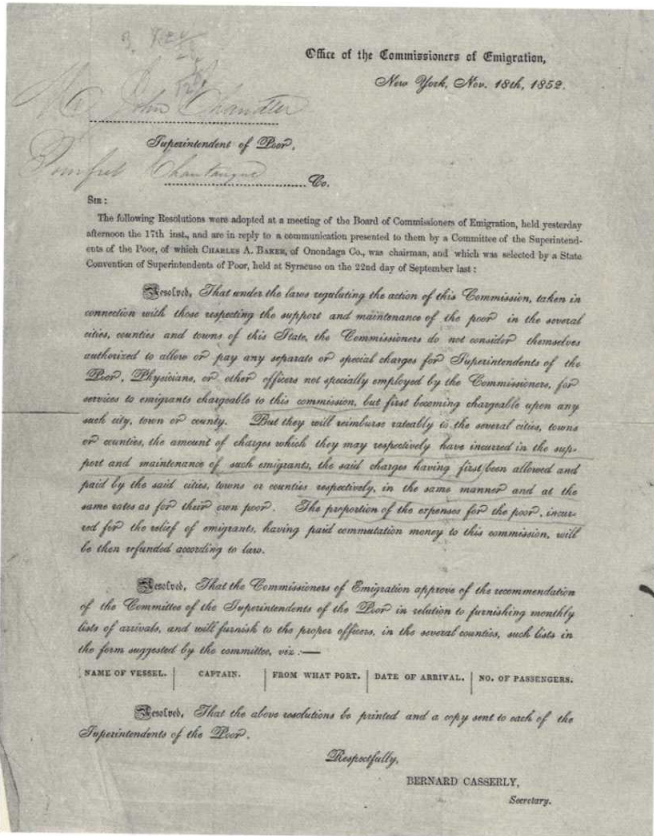 Office of the Commissioners of Emigration,
New York, Nov. 18th, 1852.
Mr John Chandler
Superintendent of Poor,
Pomfret Chautauque Co.
SIR:
The following Resolutions were adopted at a meeting of the Board of Commissioners of Emigration, held yesterday
afternoon the 17th inst., and are in reply to a communication presented to them by a Committee of the Superintend-
ents of the Poor, of which CHARLES A. BAKER, of Onondaga Co., was chairman, and which was selected by a State
Convention of Superintendents of Poor, held at Syracuse on the 22nd day of September last:
Resolved, That under the laws regulating the action of this Commission, taken in
connection with those respecting the support and maintenance of the poor in the several
cities, counties and towns of this State, the Commissioners do not consider themselves
authorized to allow or pay any separate or special charges for Superintendents of the
Poor, Physicians, or other officers not specially employed by the Commissioners, for
services to emigrants chargeable to this commission, but first becoming chargeable upon any
such city, town or county. But they will reimburse rateably to the several cities, towns
or counties, the amount of charges which they may respectively have incurred in the sup-
port and maintenance of such emigrants, the said charges having first been allowed and
paid by the said cities, towns or counties respectively, in the same manner and at the
same rates as for their own poor. The proportion of the expenses for the poor, incur-
red for the relief of emigrants, having paid commutation money to this commission, will
be then refunded according to law.
Resolved, That the Commissioners of Emigration approve of the recommendation
of the Committee of the Superintendents of the Poor in relation to furnishing monthly
lists of arrivals, and will furnish to the proper officers, in the several counties, such lists in
the form suggested by the committee, viz:—
NAME OF VESSEL. | CAPTAIN. | FROM WHAT PORT. | DATE OF ARRIVAL. | NO. OF PASSENGERS.
Resolved, That the above resolutions be printed and a copy sent to each of the
Superintendents of the Poor.
Respectfully,
BERNARD CASSERLY,
Secretary.